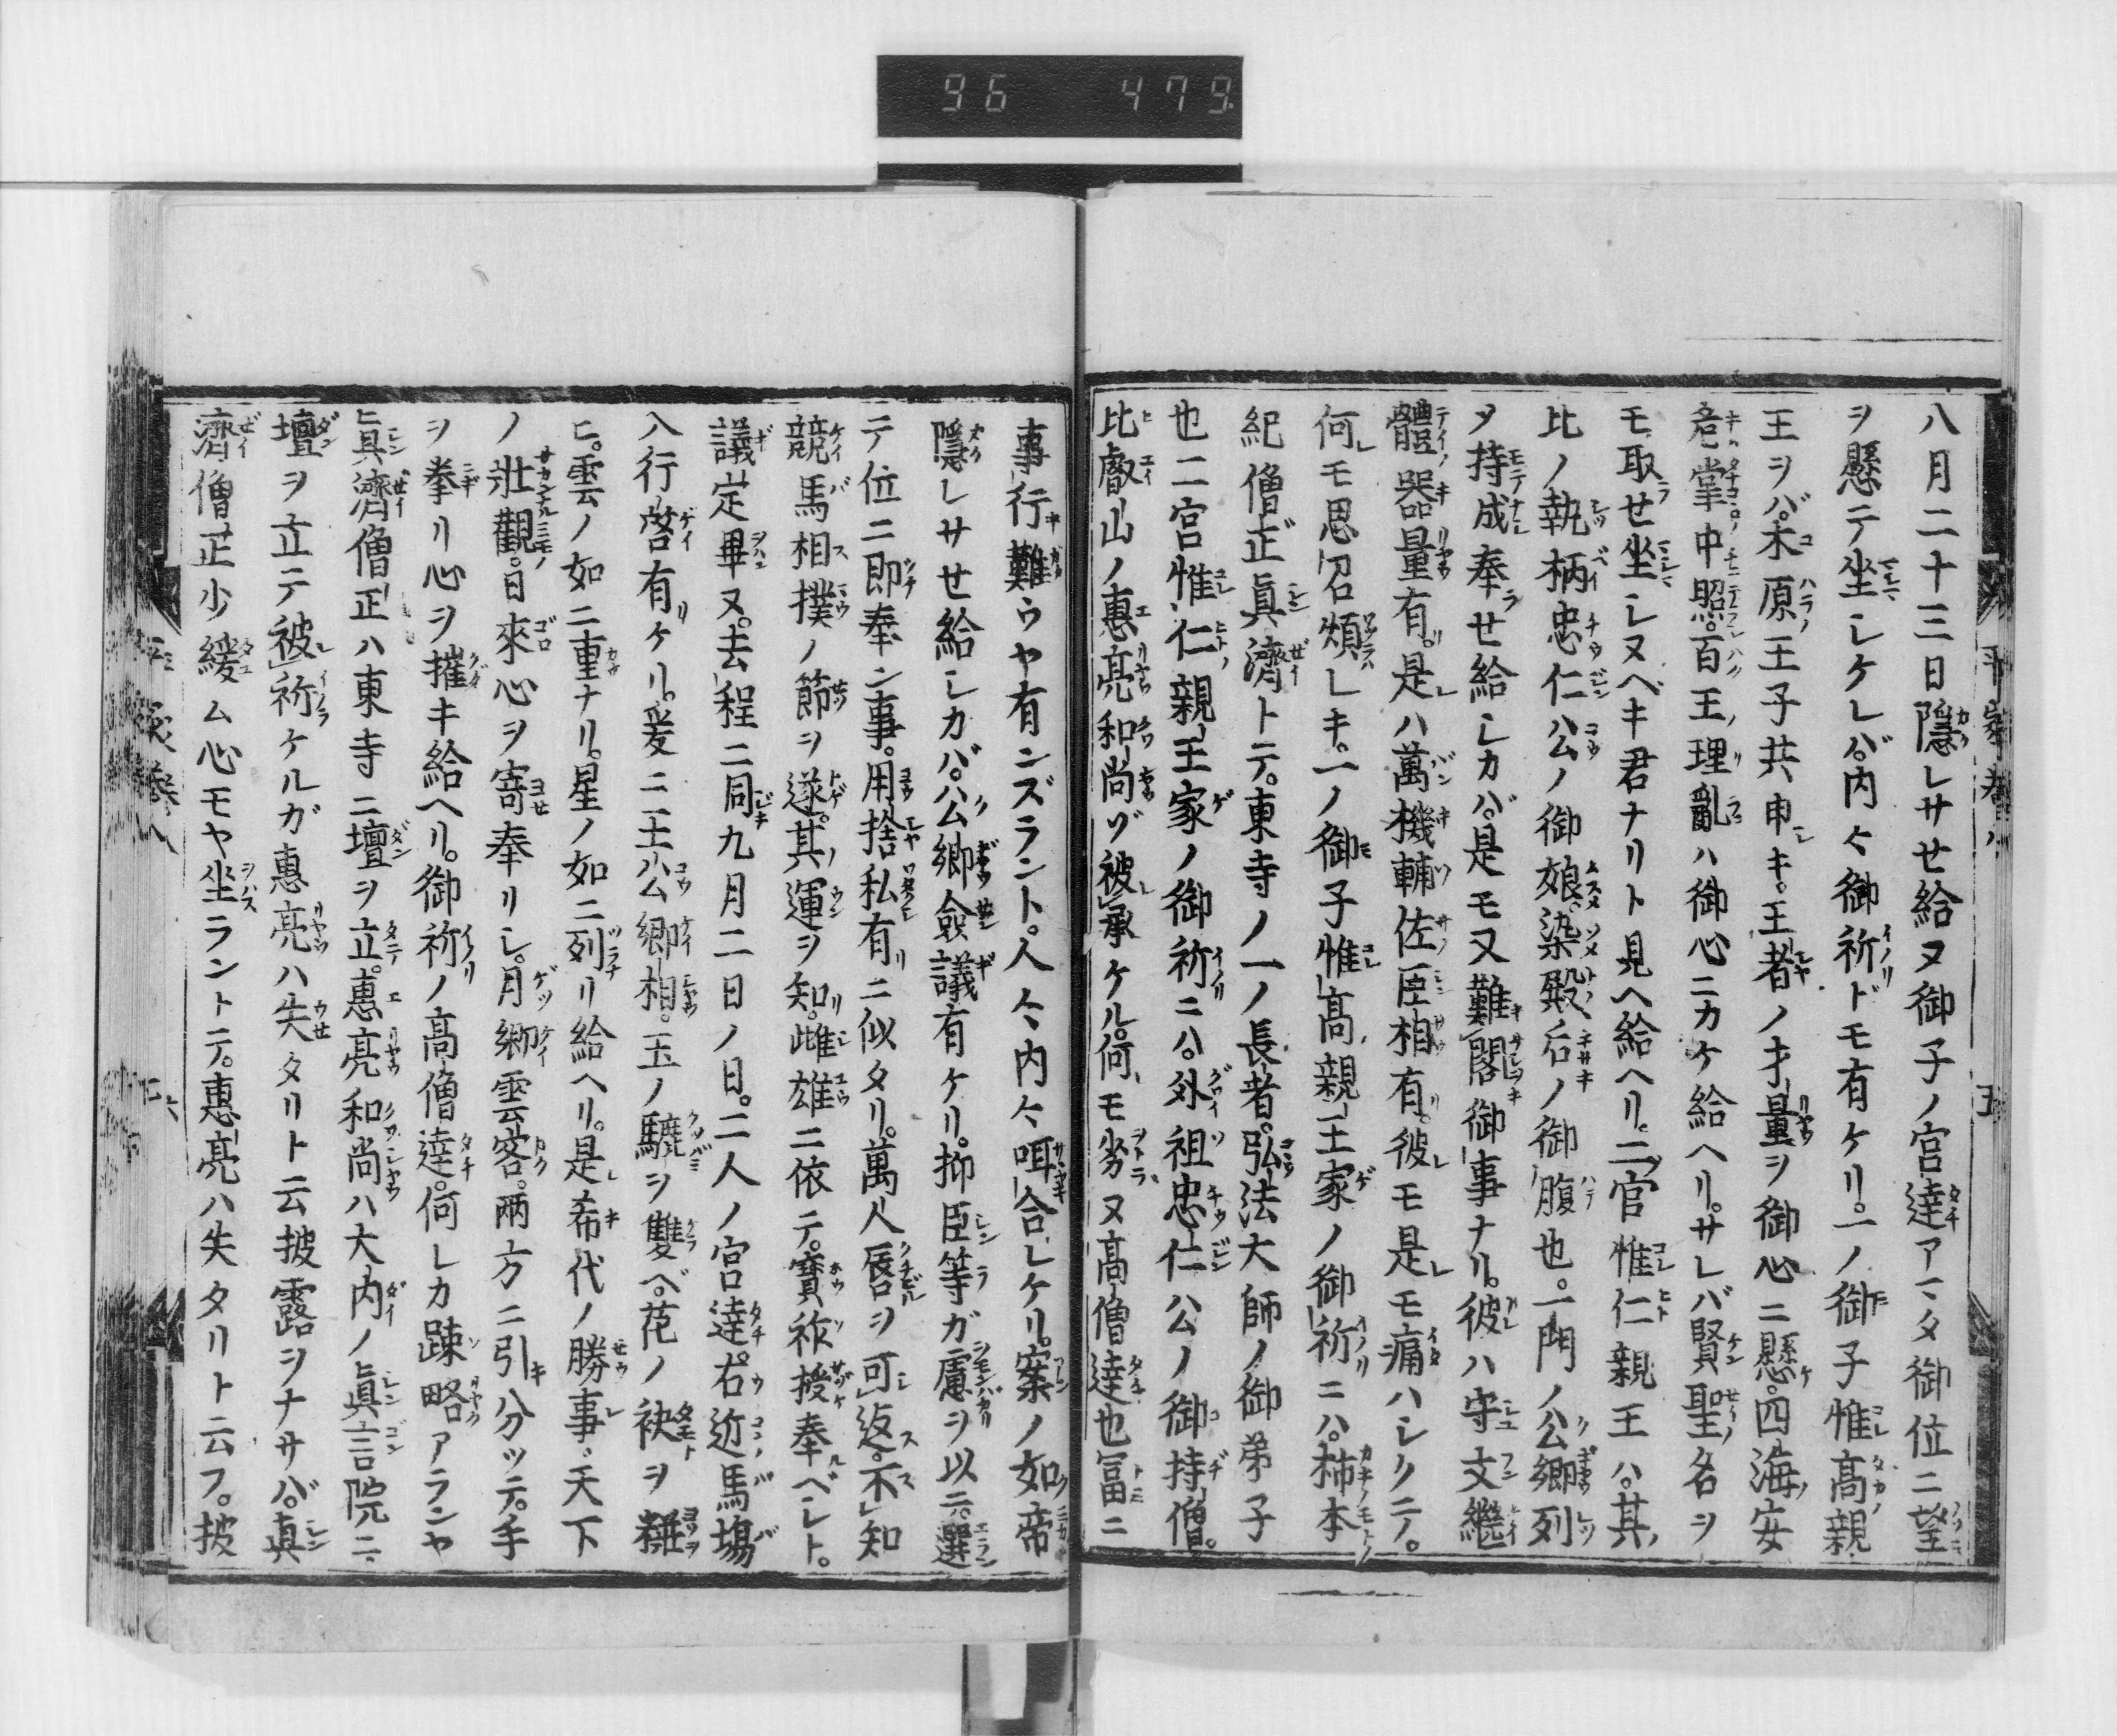 96 479
八月二十三日隱レサせ給ヌ御子ノ宮達アマタ御位ニ望
ヲ懸テ坐シケレバ。内々御祈ドモ有ケリ。一ノ御子惟髙親
王ヲバ。木原王子共申キ。王者ノ才量ヲ御心ニ懸。四海安
危掌中照。百王理亂ハ御心ニカケ給ヘリ。サレバ賢聖名ヲ
モ取せ坐シヌベキ君ナリト見ヘ給ヘリ。二宮惟仁親王ハ。其
比ノ執柄忠仁公ノ御娘。染殿后ノ御腹也。一門ノ公卿列
ヲ持成奉せ給シカバ。是モ又難閣御事ナリ。彼ハ守文繼
體器量有。是ハ萬機輔佐臣相有。彼モ是モ痛ハシクテ。
何モ思召煩レキ。一ノ御子惟髙親王家ノ御祈ニハ。柿本
紀僧正眞濟トテ。東寺ノ一ノ長者。弘法大師ノ御弟子
也二宮惟仁親王家ノ御祈ニハ。外祖忠仁公ノ御持僧。
比叡山ノ惠亮和尚ゾ被承ケル。何モ劣ヌ髙僧達也冨ニ
平家巻八 五
事行難ウヤ有ンズラント。人々内々咡合レケリ。案ノ如帝
隱レサせ給シカバ。公卿僉議有ケリ。抑臣等ガ慮ヲ以テ。選
テ位ニ即奉ン事。用捨私有ニ似タリ。萬人唇ヲ可返。不知
競馬相撲ノ節ヲ遂。其運ヲ知。雌雄ニ依テ。寳祚授奉ベシト。
議定畢ヌ。去程ニ同九月二日ノ日。二人ノ宮達。右近馬塲
入行啓有ケリ。爰ニ王公卿相。玉ノ轡ヲ雙ベ。花ノ袂ヲ粧
ヒ。雲ノ如ニ重ナリ。星ノ如ニ列リ給ヘリ。是希代ノ勝事。天下
ノ壯觀。日來心ヲ寄奉リシ。月卿雲客。兩方ニ引分ッテ。手
ヲ拳リ心ヲ摧キ給ヘリ。御祈ノ髙僧達。何レカ踈略アランヤ
ト眞濟僧正ハ東寺ニ壇ヲ立。惠亮和尚ハ大内ノ眞言院ニ
壇ヲ立テ被祈ケルガ惠亮ハ失タリト云披露ヲナサバ。眞
濟僧正少緩ム心モヤ坐ラントテ。惠亮ハ失タリト云フ。披